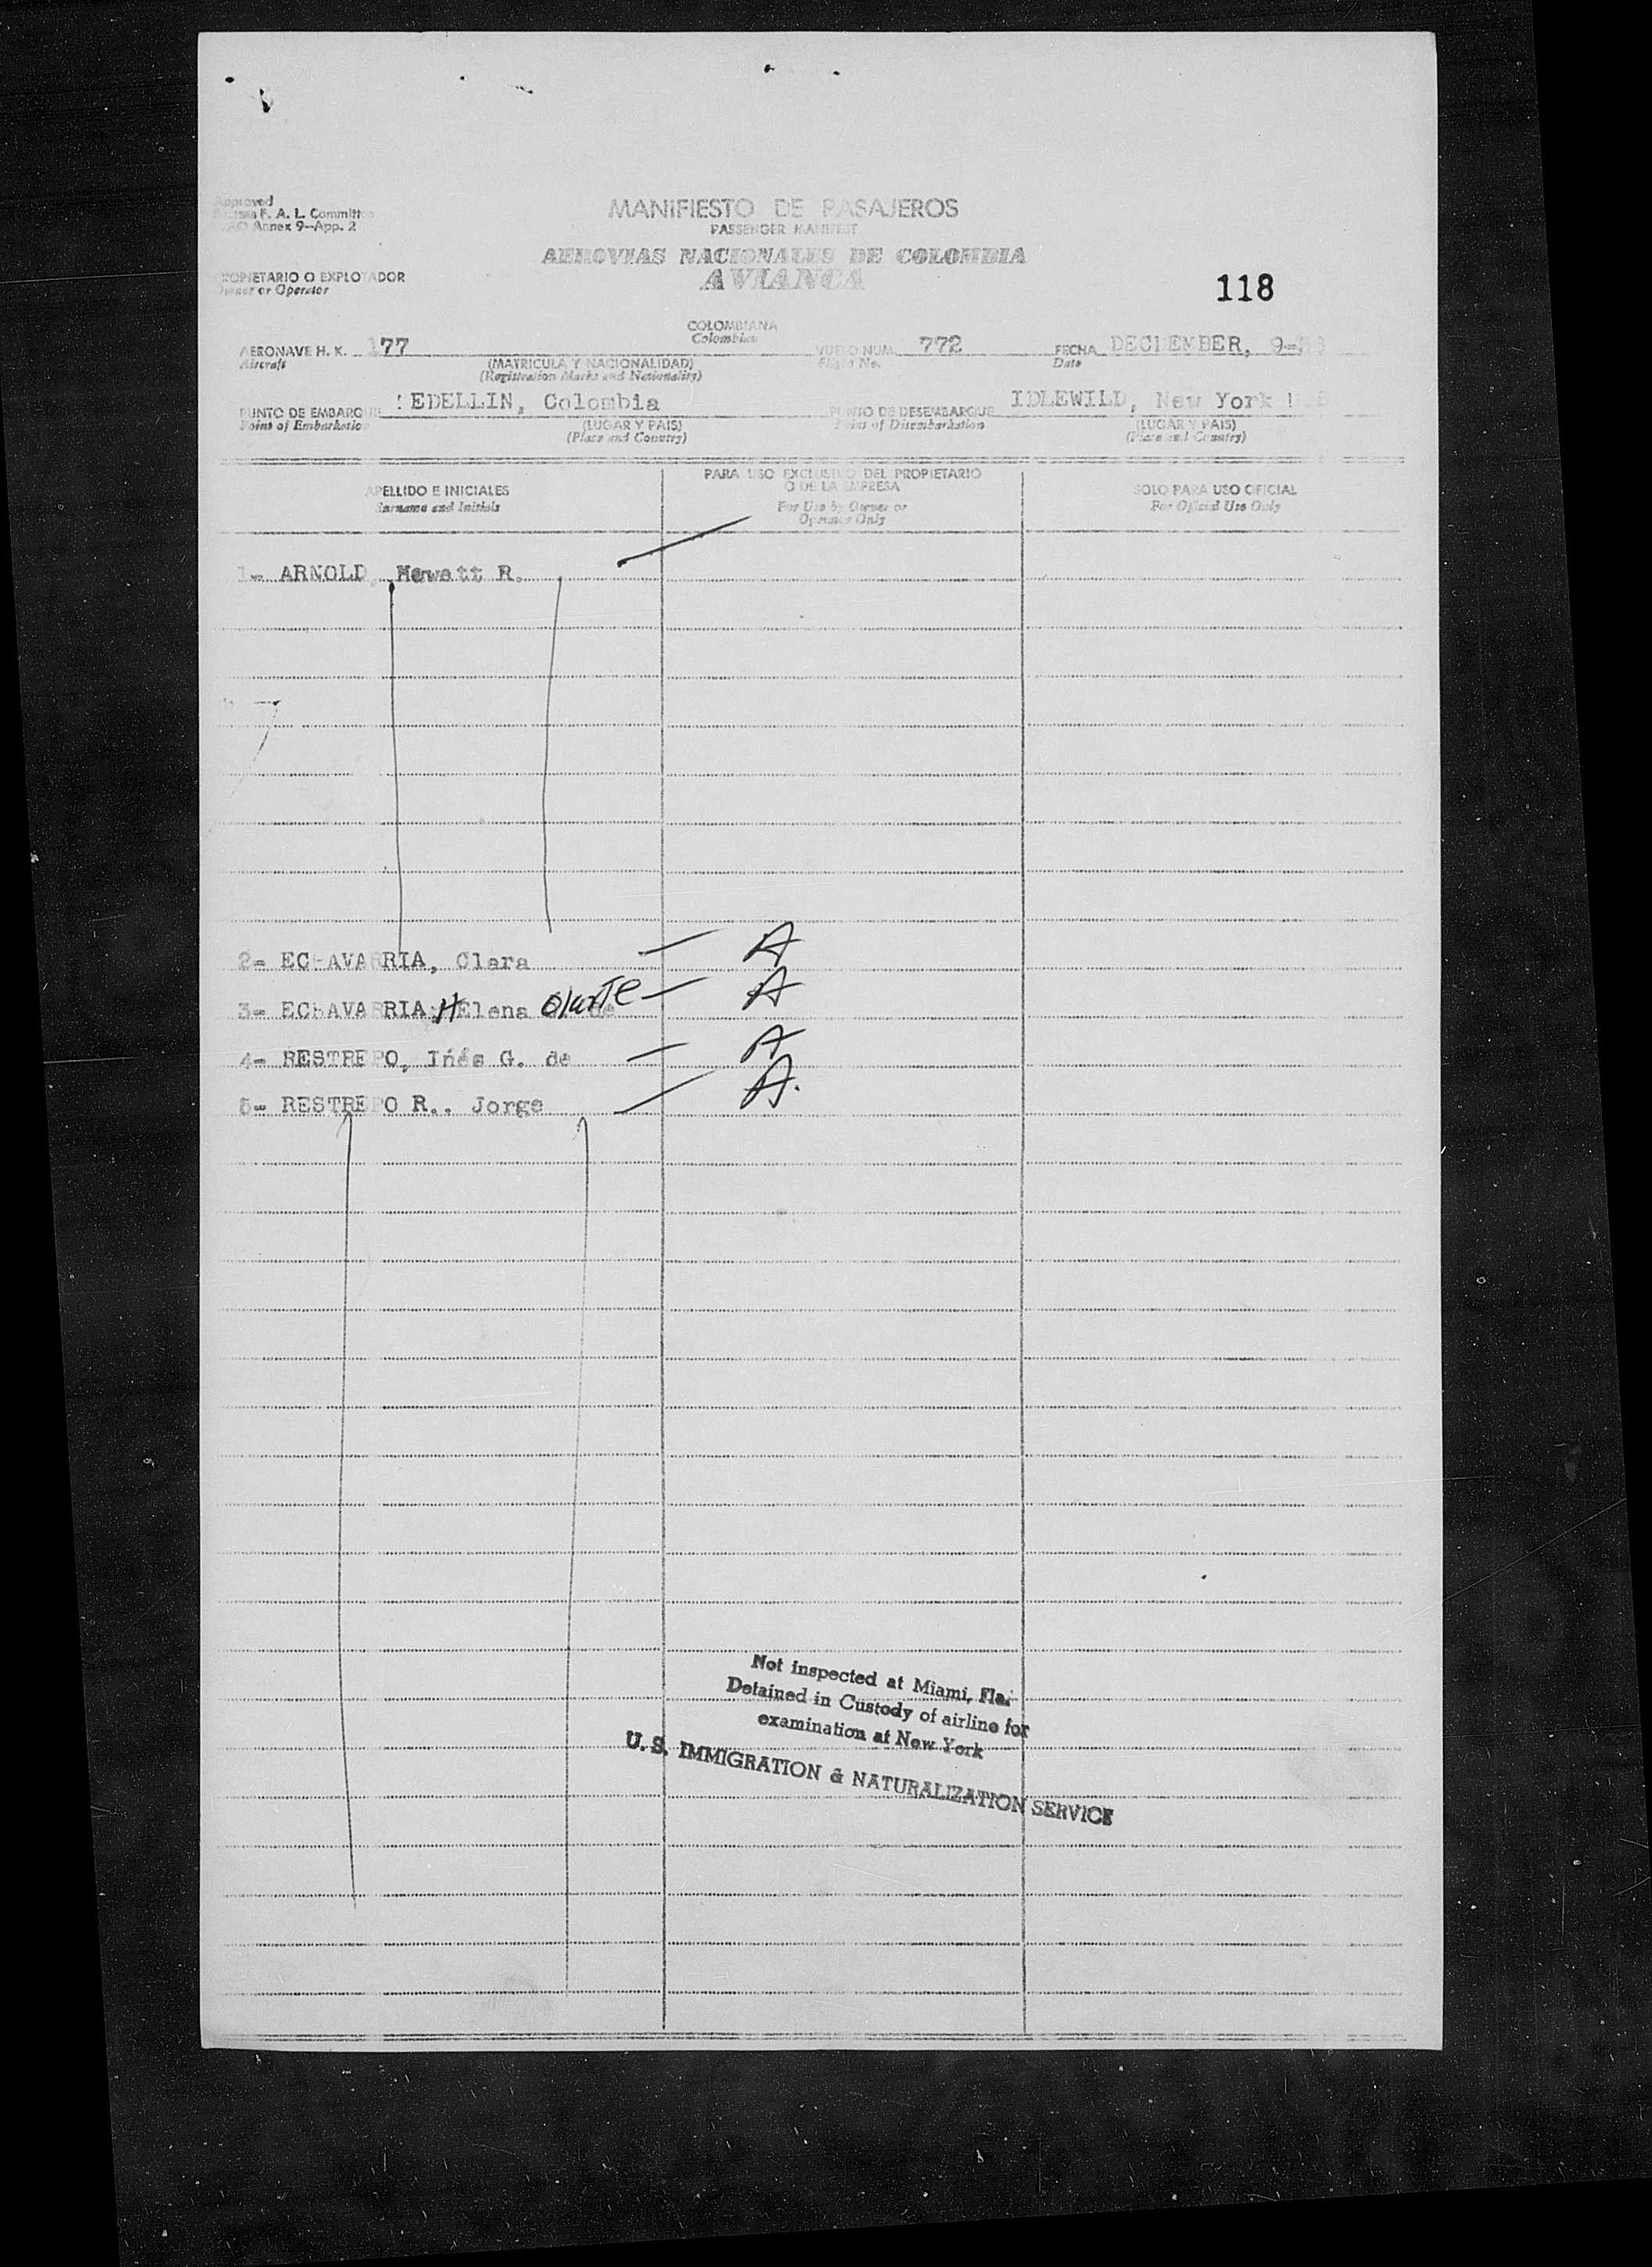 Approved
F. A. L. Committ
Annex 9--App. 2
MANIFIESTO DE PASAJEROS
PASSENGER MANIFEST
AEROVIAS NACIONALES DE COLOMBIA
AVIANCA
PROPIETARIO O EXPLOTADOR
Owner or Operator
118
COLOMBIANA
Colombian
AERONAVE H. K. 177 VUELO NUM. 772 FECHA DECIEMBER, 9-56
Aircraft (MATRICULA Y NACIONALIDAD) Flight No. Date
(Registration Marks and Nationality)
PUNTO DE EMBARQUE MEDELLIN, Colombia PUNTO DE DESEMBARQUE IDLEWILD, New York
Point of Embarkation (LUGAR Y PAIS) Point of Disembarkation (LUGAR Y PAIS)
(Place and Country) (Place and Country)
APELLIDO E INICIALES
Surname and Initials
PARA USO EXCLUSIVO DEL PROPIETARIO
O DE LA EMPRESA
For Use by Owner or
Operator Only
SOLO PARA USO OFICIAL
For Official Use Only
1- ARNOLD, Hewatt R.
2- ECHAVARRIA, Clara A
3- ECHAVARRIA, HElena Olarte de A
4- RESTREPO, Inés G. de A
5- RESTREPO R.. Jorge A.
Not inspected at Miami, Fla.
Detained in Custody of airline for
examination at New York
U. S. IMMIGRATION & NATURALIZATION SERVICE